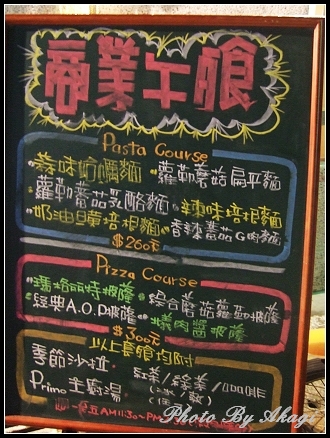 商業午餐
Pasta Course
蒜味蛤蠣麵 蘿勒蘑菇扁平麵
蘿勒蕃茄乳酪麵 辣味培根麵
奶油旦黃培根麵 香辣蕃茄G肉麵
$260元
Pizza Course
瑪格莉特披薩 綜合蘑菇蘿勒披薩
經典A.O.P披薩 燻肉醬披薩
$300元
以上套餐均附
季節沙拉 紅茶/綠茶/咖啡
Primo主廚湯 (冰/熱)
五AM11:30~PM
Photo By Akagi